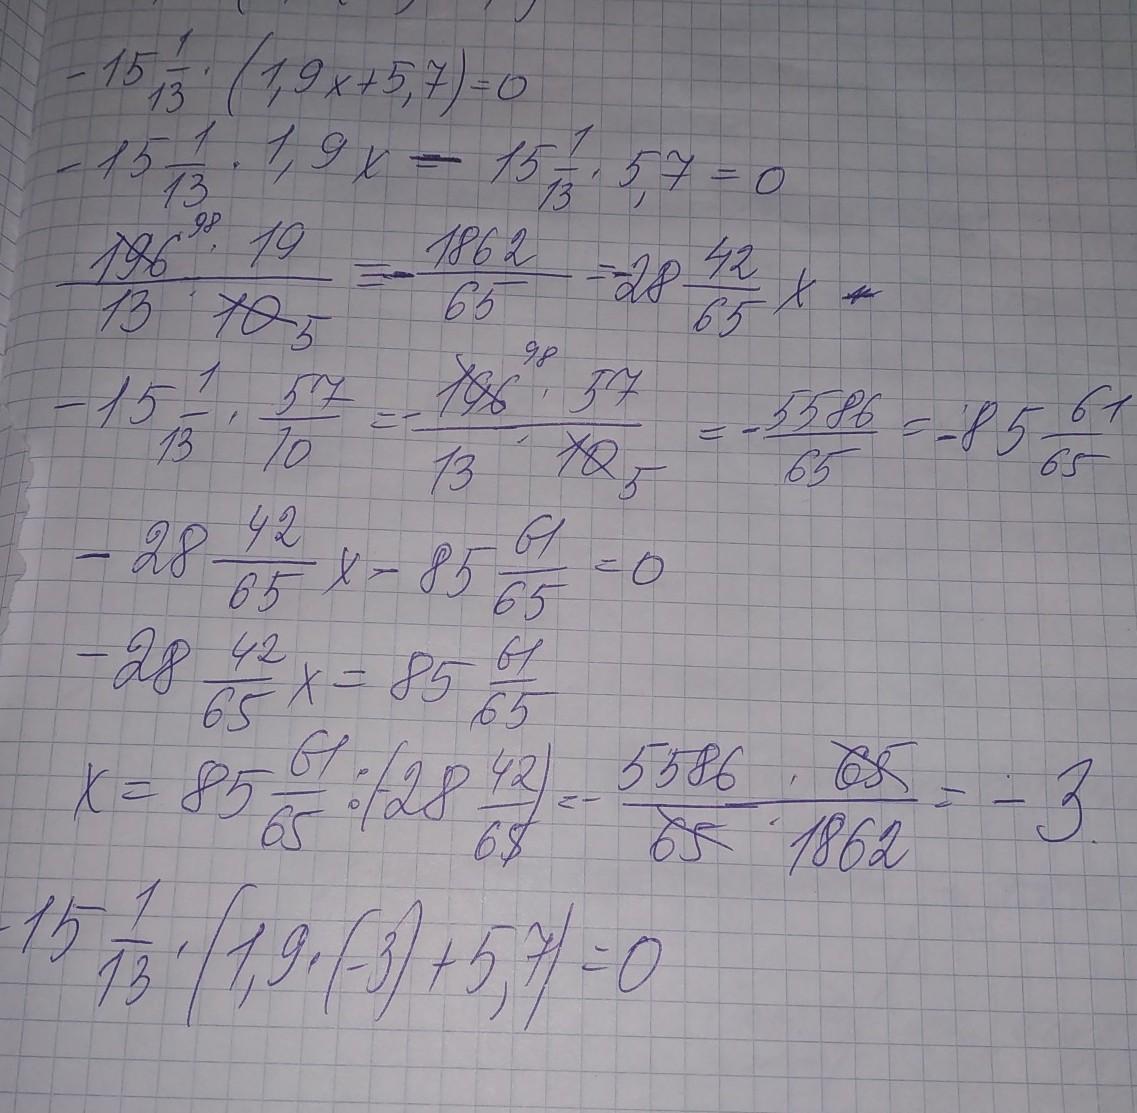 -15 1/13 · (1,9x+5,7)=0
-15 1/13 · 1,9x - 15 1/13 · 5,7 = 0
196 98 · 19 / 13 · 10 5 = -1862/65 = -28 42/65 x -
-15 1/13 · 57/10 = - 196 98 · 57 / 13 · 10 5 = - 5586/65 = -85 61/65
-28 42/65 x - 85 61/65 = 0
-28 42/65 x = 85 61/65
x = 85 61/65 : (-28 42/65) = - 5586 · 65 / 65 · 1862 = -3.
-15 1/13 · (1,9 · (-3) + 5,7) = 0